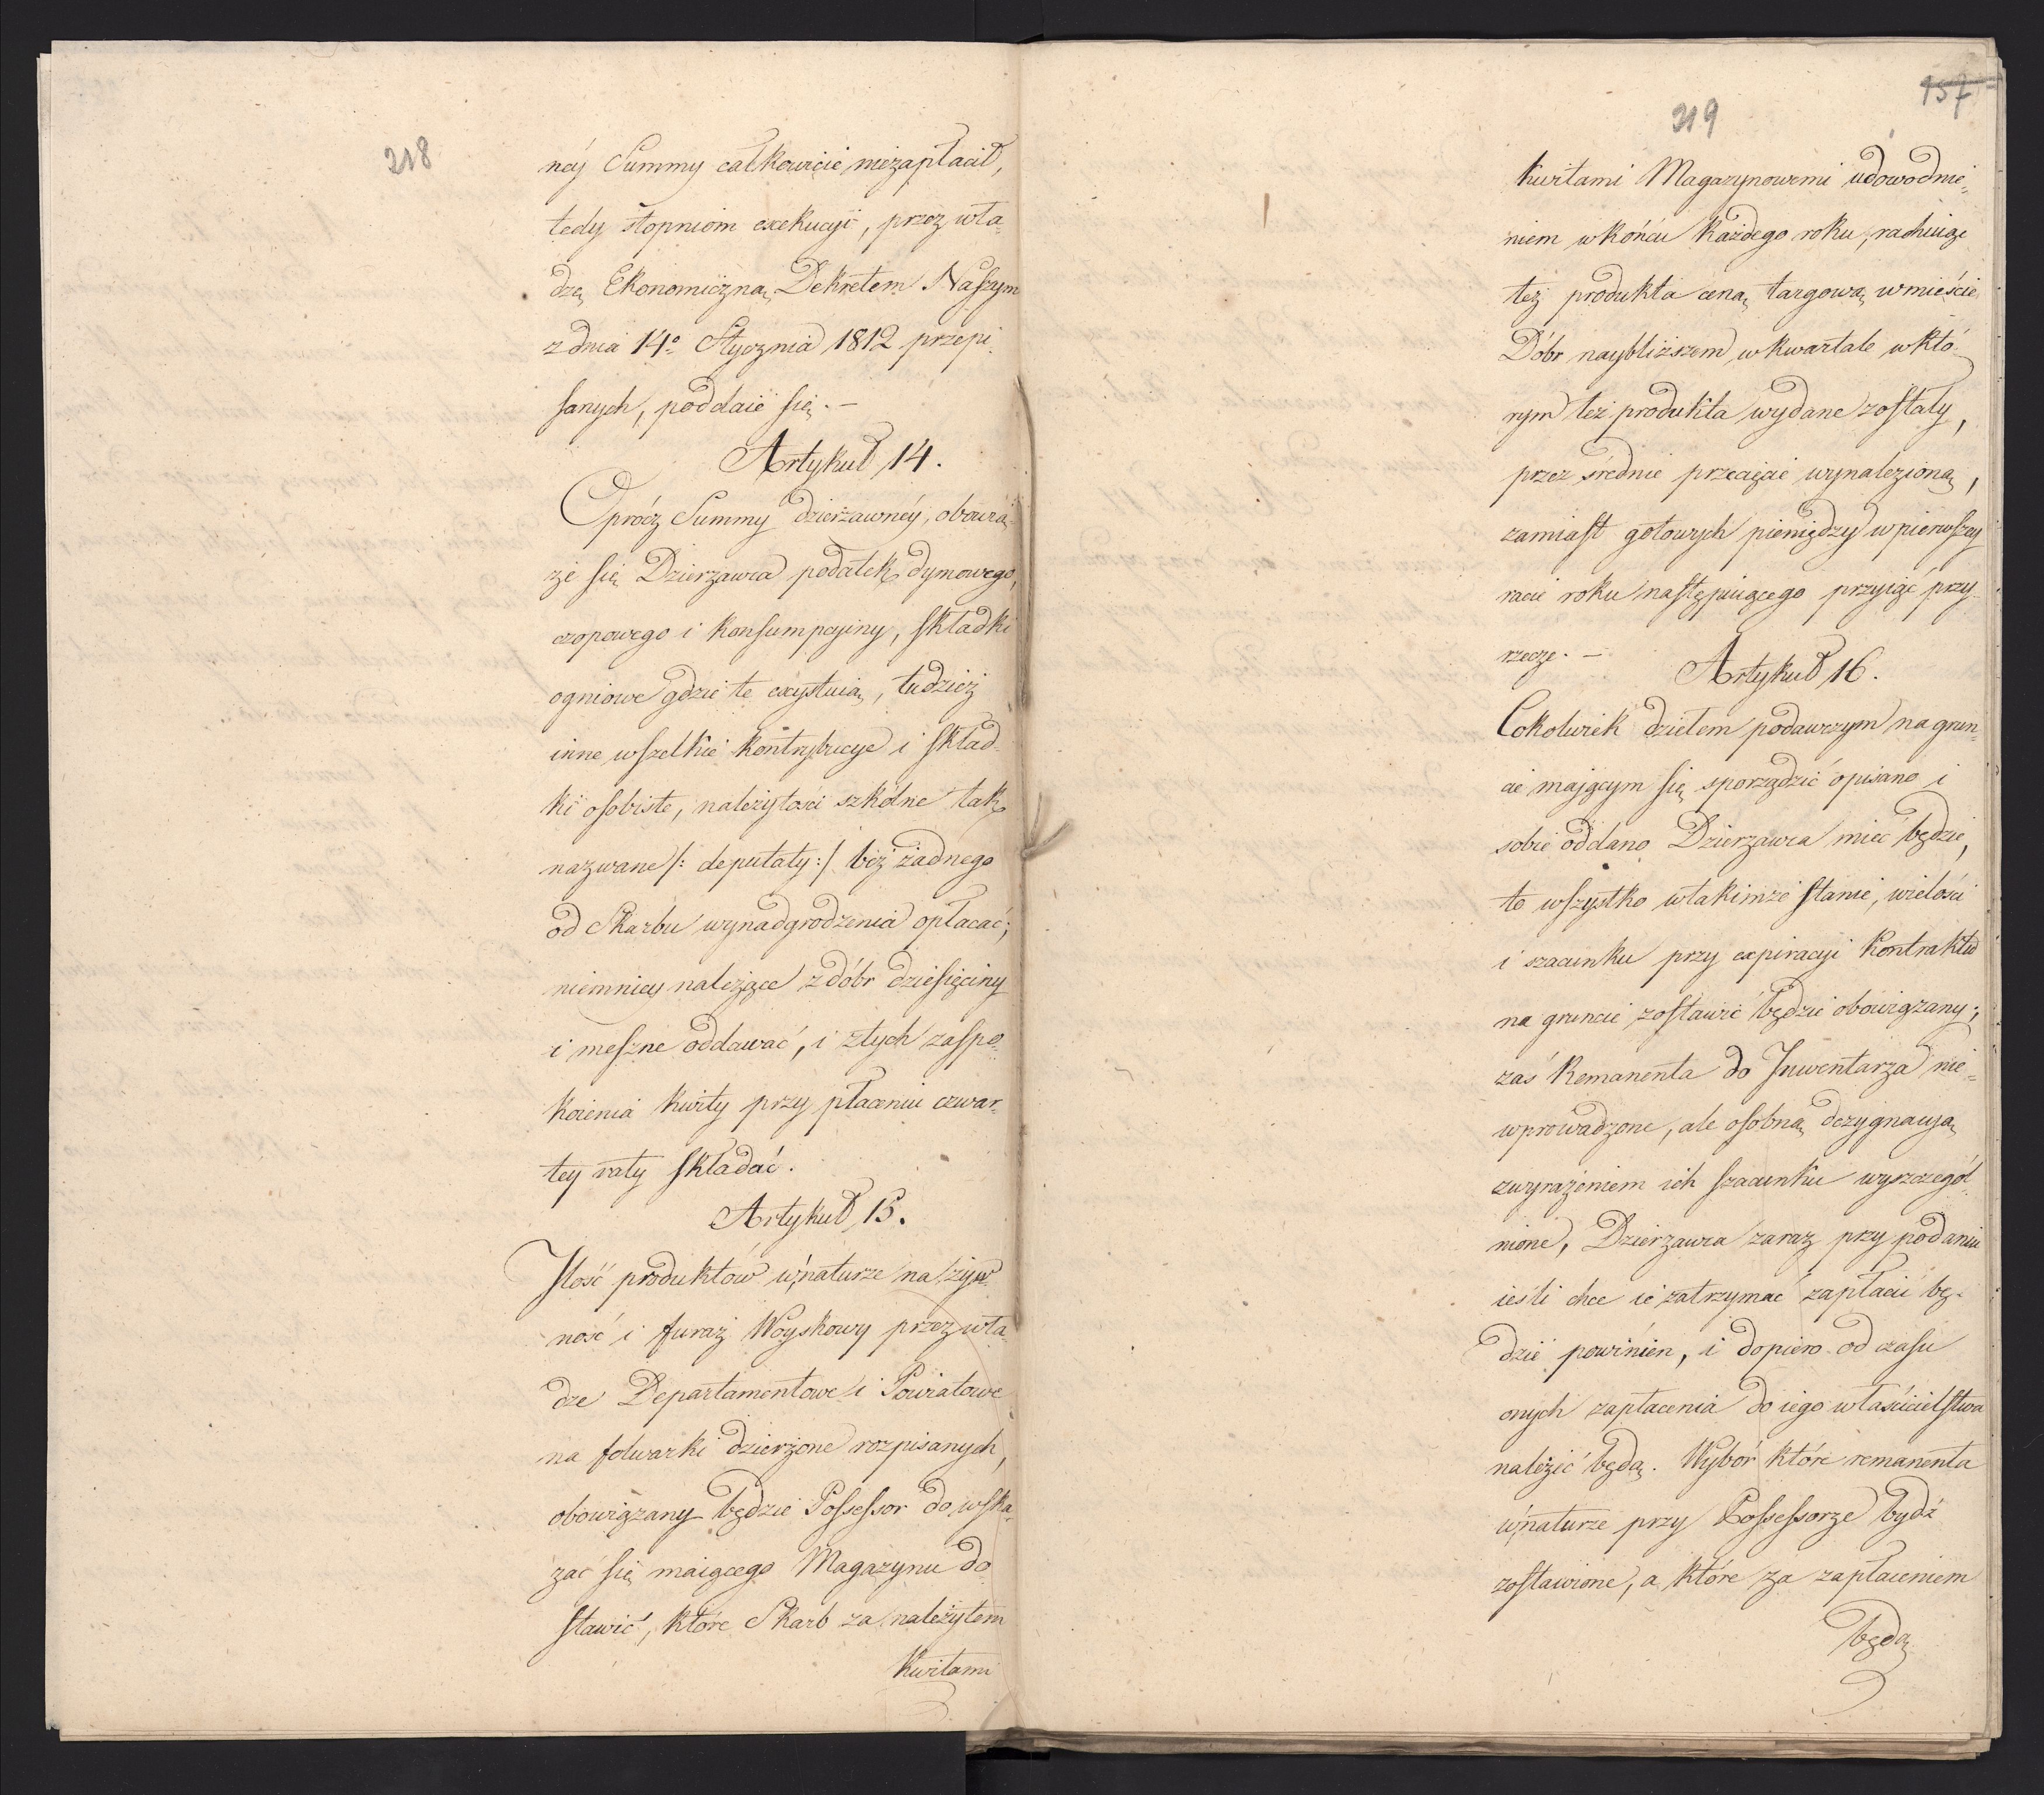 218
ney Summy całkowicie niezapłacił,
tedy stopniom exekucyi, przez wła-
dzę Ekonomiczną, Dekretem Naszym
z dnia 14º Stycznia 1812 przepi-
sanych, poddaie się. —
Artykuł 14.
Oprócz Summy dzierżawnéy, obowią-
że się Dzierżawca podatek dymowego,
czopowego i konsumpcyiny, składki
ogniowe gdzie te exystuią, tudzież
inne wszelkie kontrybucye i skład-
ki osobiste, należytości szkólne tak
nazwane /: deputaty :/ bez żadnego
od Skarbu wynadgrodzenia opłacać;
niemniey należące z dóbr dziesięciny
i meszne oddawać, i z tych zaspo-
koienia kwity przy płaceniu czwar-
tey raty składać.
Artykuł 15.
Ilość produktów w naturze na żyw-
ność i furaż Woyskowy przez wła-
dze Departamentowe i Powiatowe
na folwarki dzierżone rozpisanych,
obowiązany będzie Possessor do wska-
zać się maiącego Magazynu do
stawić, które Skarb za należytem
Kwitami
157
219
kwitami Magazynowemi udowodnie-
niem w końcu każdego roku, rachuiąc
też produkta ceną targową w mieście
Dóbr naybliższem w kwartale w któ-
rym też produkta wydane zostały,
przez średnie przecięcie wynalezioną,
zamiast gotowych pieniędzy w pierwszey
racie roku następuiącego przyiąć przy-
rzecze. —
Artykuł 16.
Cokolwiek dziełem podawczym na grun-
cie mającym się sporządzić opisano i
sobie oddano Dzierżawca mieć będzie,
to wszystko w takimże stanie, wielości
i szacunku przy expiracyi Kontraktu
na gruncie zostawić będzie obowiązany;
zaś Remanenta do Inwentarza nie-
wprowadzone, ale osobną dezygnacyą
z wyrażeniem ich szacunku wyszczegól-
nione, Dzierżawca zaraz przy podaniu
ieśli chce ie zatrzymać zapłacić bę-
dzie powinien, i dopiero od czasu
onych zapłacenia do iego właścicielstwa
należić będą. Wybór które remanenta
w naturze przy Possessorze bydź
zostawione, a które za zapłaceniem
będą